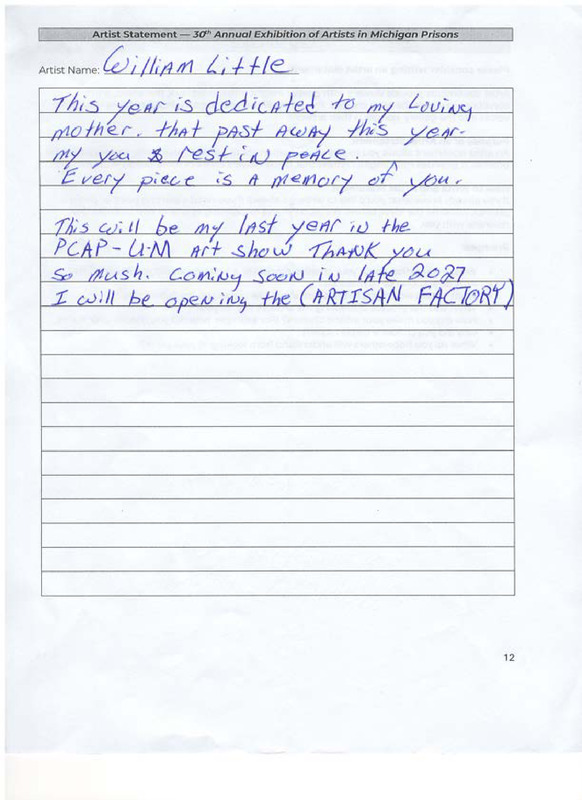 Artist Statement — 30th Annual Exhibition of Artists in Michigan Prisons
Artist Name: William Little
This year is dedicated to my loving
mother. that past away this year.
my you rest in peace.
Every piece is a memory of you.
This will be my last year in the
PCAP-U-M Art show Thank you
So mush. Coming soon in late 2027
I will be opening the (ARTISAN FACTORY)
12